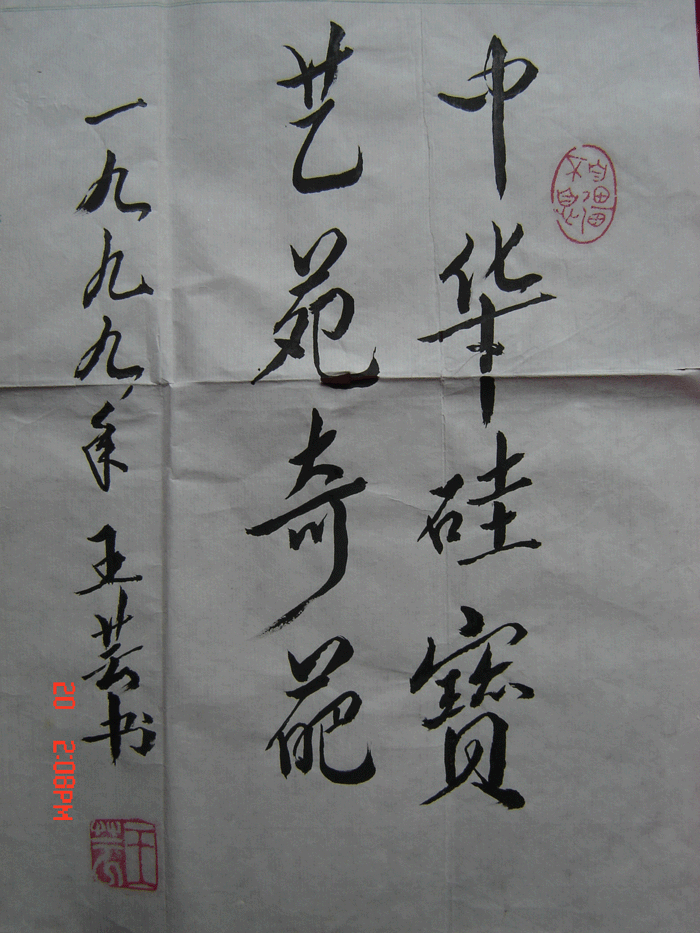 中华硅寳
艺苑奇葩
一九九九年 王芸书
王芸
20 2:08PM